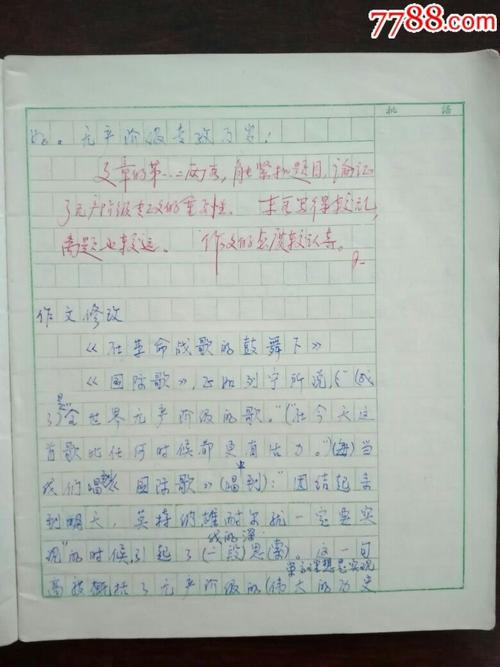 7788.com
批 语
无产阶级专政万岁！
文章的第一、二两点，能紧扣题目，论证
了无产阶级专政的重要性。末尾写得较乱，
离题也较远。作文的态度较认真。
作文修改
《在革命战歌的鼓舞下》
《国际歌》，正如列宁所说，“（成
了）是全世界无产阶级的歌。”（“在今天这
首歌比任何时候都更有活力。”）（每）当
我们唱 国际歌》（唱到）中：“团结起来
到明天，英特纳雄耐尔就一定要实
现”的时候，引起了（一段）我的深思（索）。这一句
高度概括了无产阶级的（伟大的历史